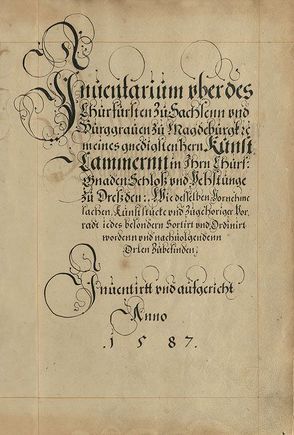 Inuentarium vber des
Churfürsten zu Sachsenn vnd
Burggrauen zu Magdeburgk ꝛc
meines gnedigsten Hern Kunst
Cammernn in Ihrn Churf.
Gnaden Schloß vnd Vehstunge
zu Dreßden:. Wie dieselben Vornehme
sachen, Kunststücke vnd Zugehöriger Vor,
radt iedes besondern Sortirt vnd Ordinirt
wordenn vnd nachuolgendenn
Orten Zubefinden.
Inuentirtt vnd aufgericht
Anno
.1587.